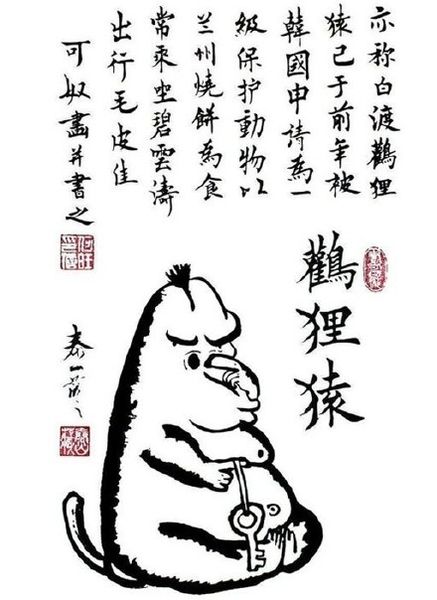 亦称白渡鸛狸
猿已于前年被
韓國申請為一
級保护動物以
兰州燒餅為食
常乘坐碧雲濤
出行毛皮佳
可奴畫并書之
鸛狸猿